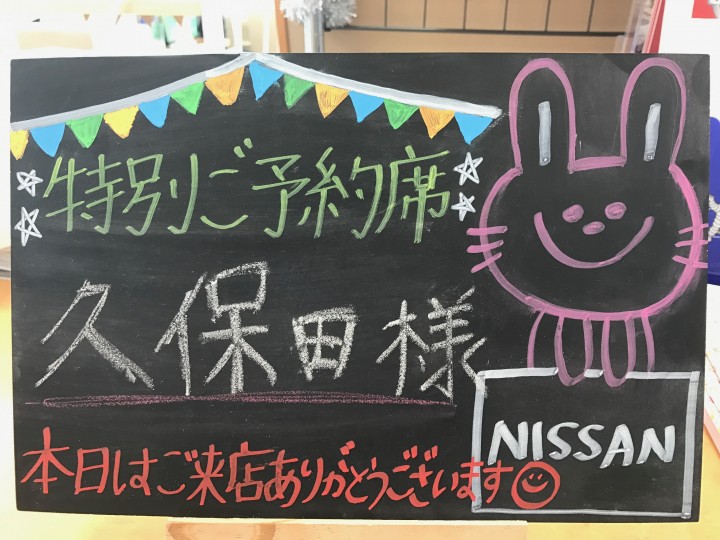 特別ご予約席
久保田様
NISSAN
本日はご来店ありがとうございます